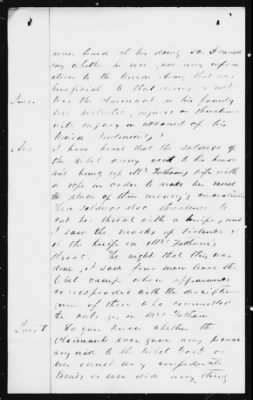 never heard of his doing so. I cannot
say whether he ever gave any infor
ation to the Union Army that was
beneficial to that army or not
Ques. Was the claimant or his family
ever molested, injured or threatened
with injury on account of his
Union Sentiment?
Ans. I have heard that the soldiers of
the Rebel army went to his house
and hung up Mrs Fotham's wife with
a rope in order to make her reveal
the place of their money's concealment
These soldiers also threatened to
cut her throat with a knife, and
I saw the marks of violence &
of the knife on Mrs Fotham's
throat. The night that this was
done, I saw four men leave the
Rebel camp whose appearance
corresponded with the description
given of those who committed
the outrage on Mrs Fotham
Ques Do you know whether the
Claimant ever gave any
any aid to the Rebel cause or
ever owned any Confederate
Bonds or ever did any thing